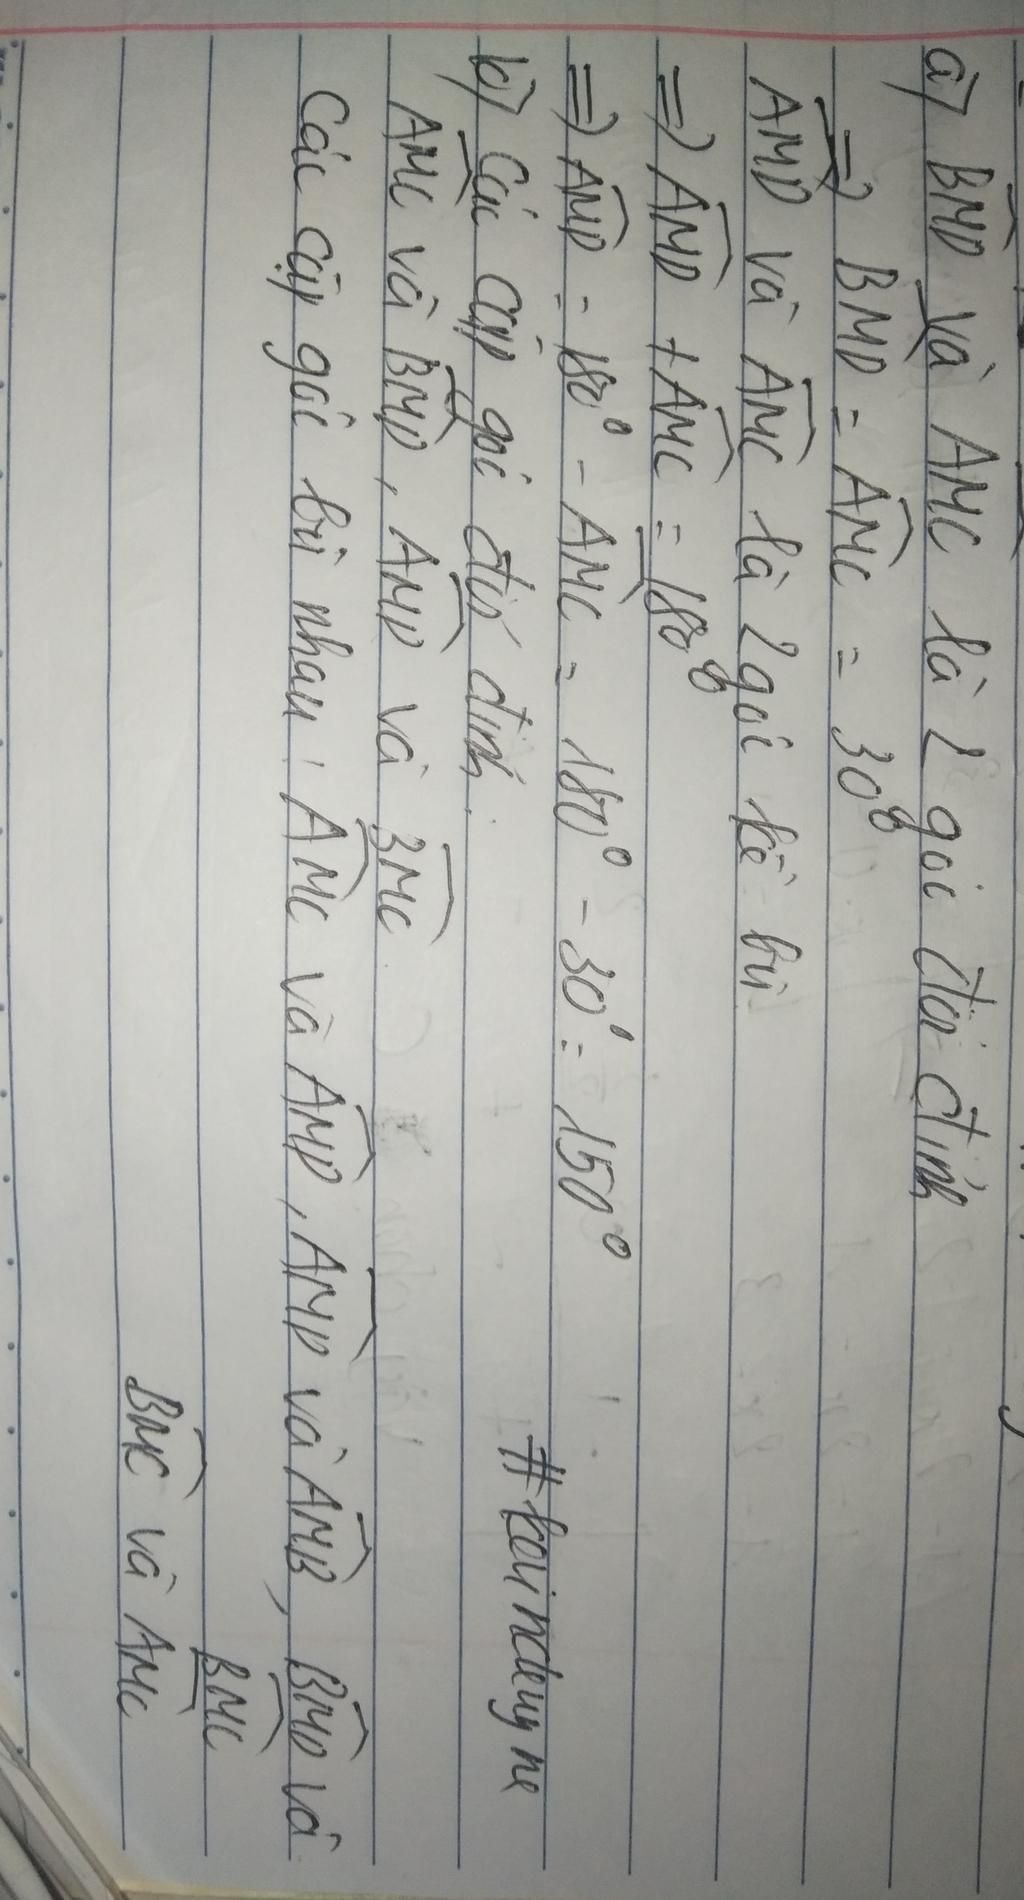 a) BMD và AMC là 2 góc đối đỉnh
=> BMD = AMC = 30°
AMD và AMC là 2 góc kề bù
=> AMD + AMC = 180°
=> AMD = 180° - AMC = 180° - 30° = 150°
#
b) Các cặp góc đối đỉnh:
AMC và BMD, AMD và BMC
Các cặp góc bù nhau: AMC và AMD, AMD và AMB, BMD và
BMC
BMC và AMC